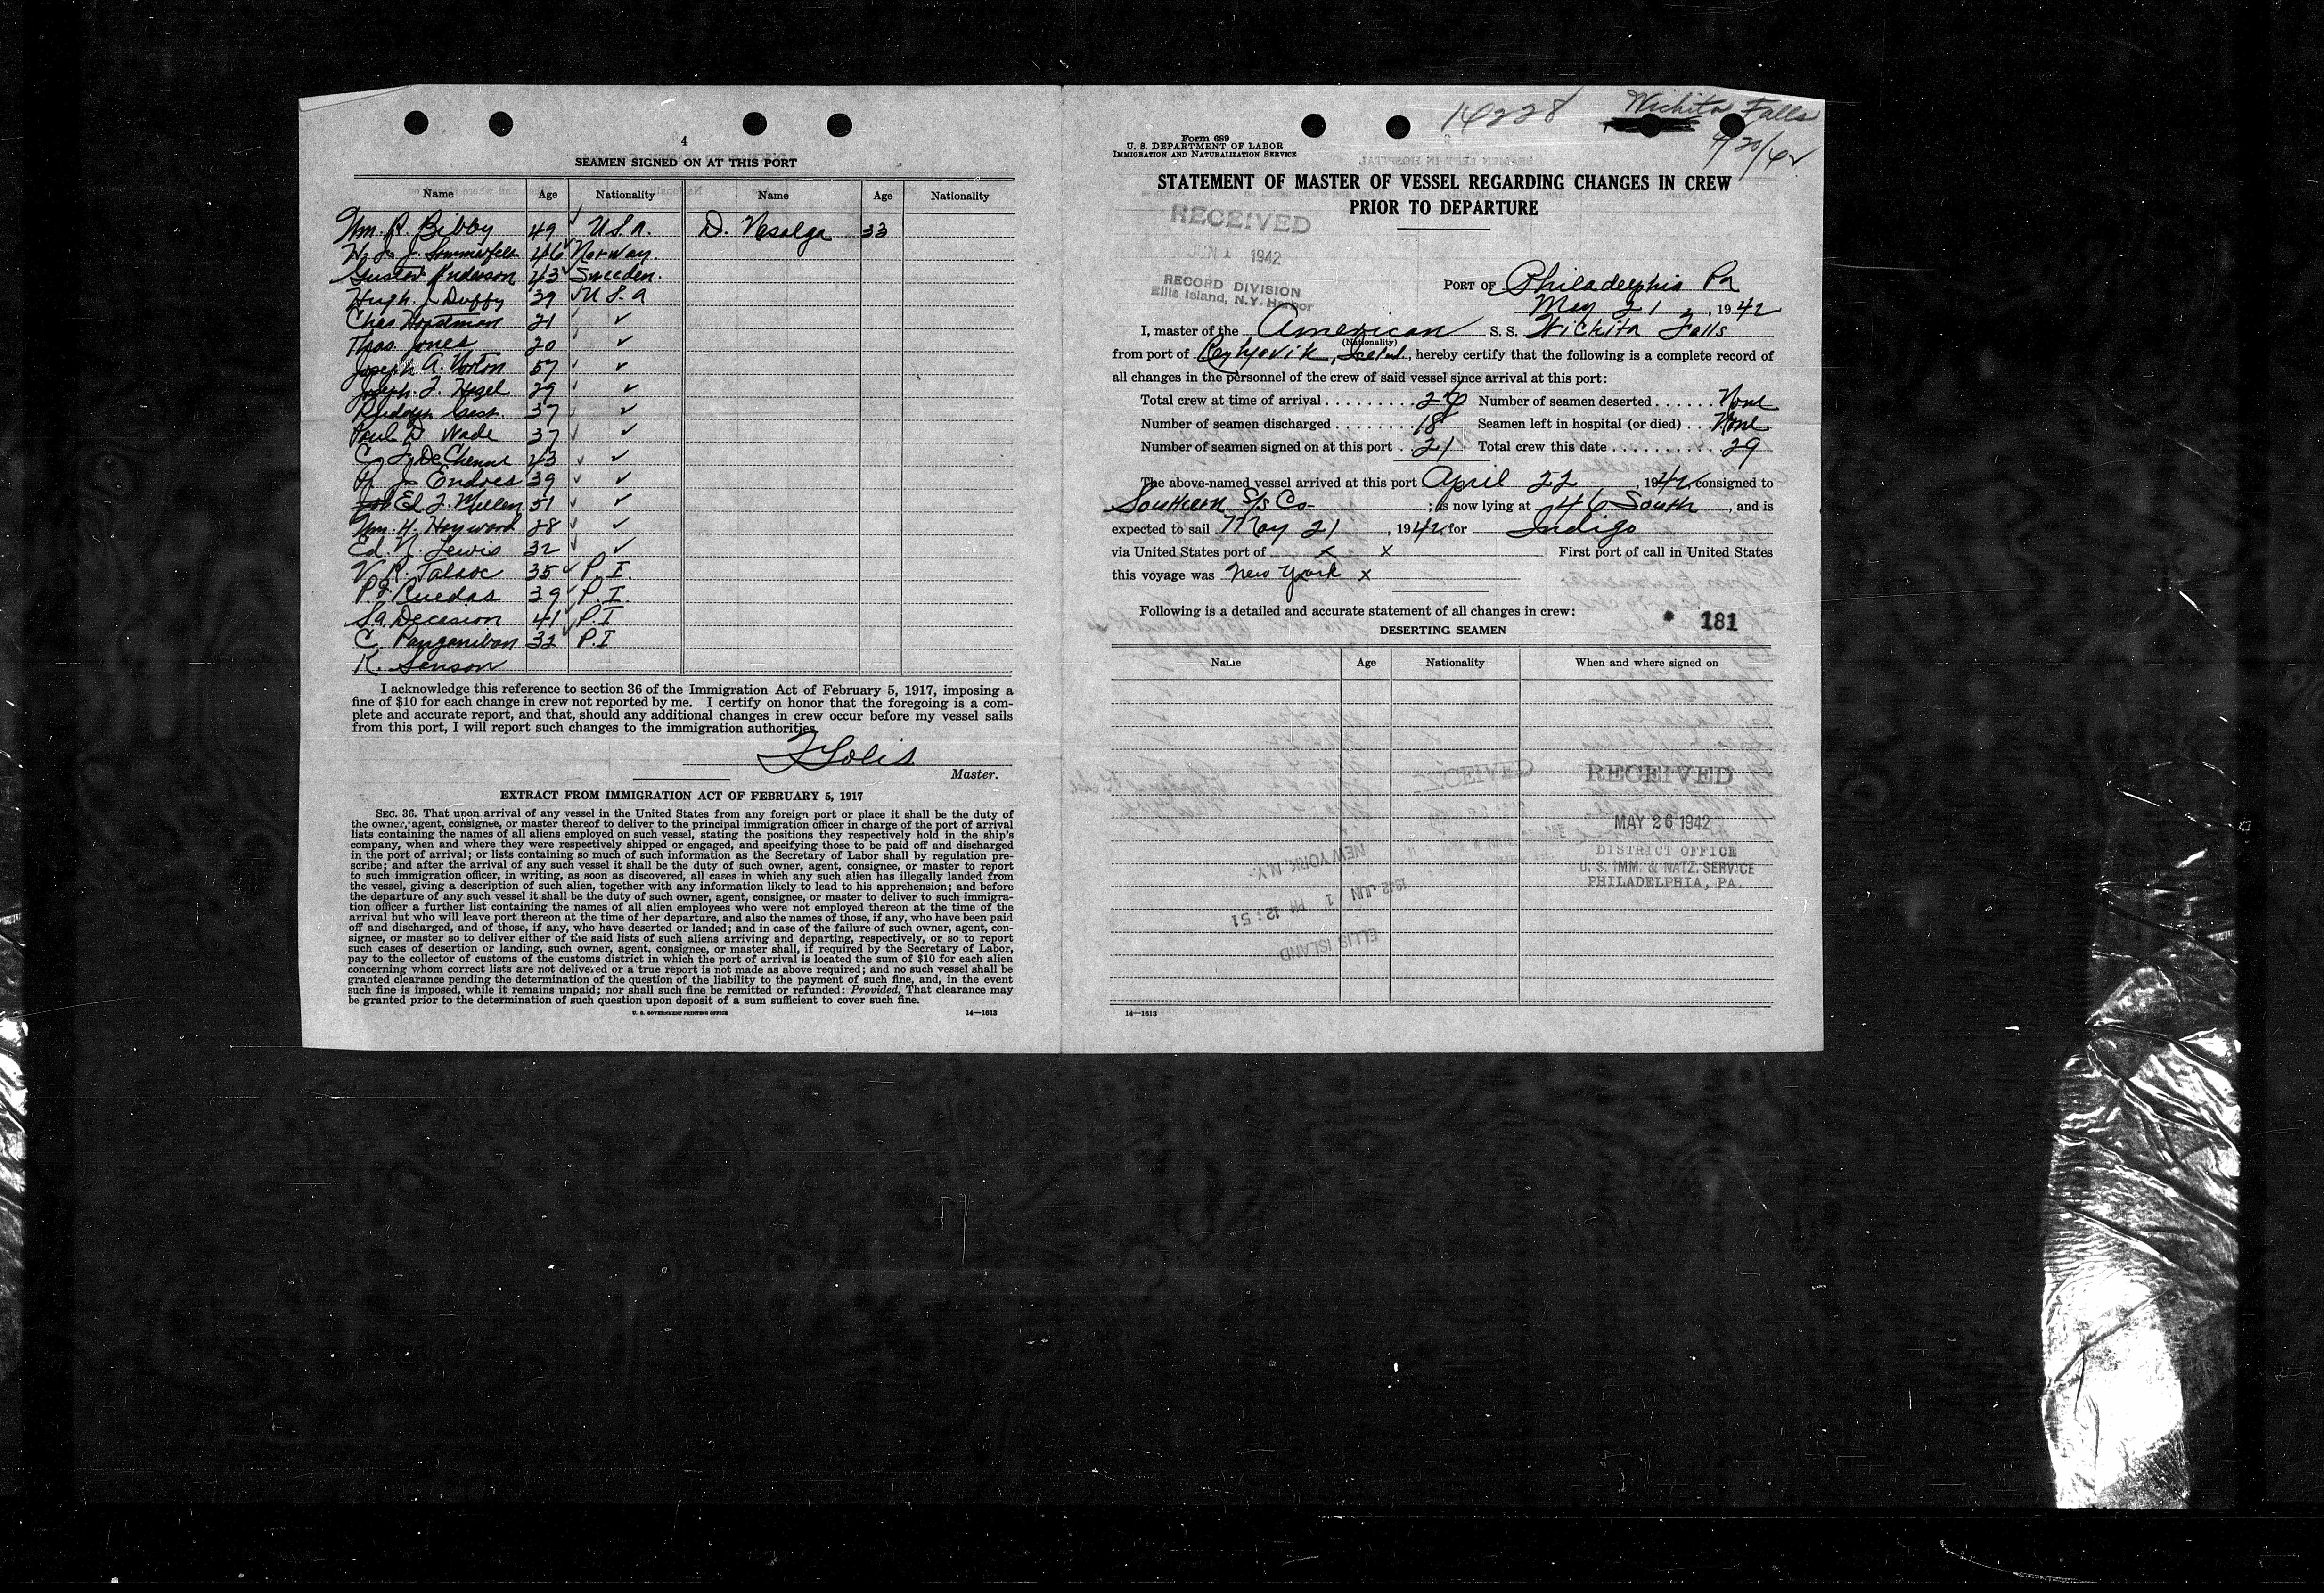 4
SEAMEN SIGNED ON AT THIS PORT
Name Age Nationality Name Age Nationality
Wm. R. Bibby 49 ✓ U.S.A. D. Nesalga 33
46 ✓ Norway.
Gustav Anderson 43 ✓ Sweeden.
Hugh. J. Duffy 39 ✓ U.S.A
Chas Horstman 21 ✓ ✓
Thos. Jones 20 ✓ ✓
Joseph A. Norton 57 ✓ ✓
Joseph. F. Hazel 29 ✓ ✓
Rudolph 37 ✓ ✓
Paul D. Wade 37 ✓ ✓
C. F. DeChenne 43 ✓ ✓
J. Endres 39 ✓ ✓
Ed. J. Mullen 51 ✓ ✓
Wm. H. Hayward 28 ✓ ✓
Ed. N. Lewis 32 ✓ ✓
V. R. Talaoc 35 ✓ P.I.
P. Ruedas 39 ✓ P.I.
Decasion 41 ✓ P.I
C. Panganiban 32 ✓ P.I
R. Senson
I acknowledge this reference to section 36 of the Immigration Act of February 5, 1917, imposing a
fine of $10 for each change in crew not reported by me. I certify on honor that the foregoing is a com-
plete and accurate report, and that, should any additional changes in crew occur before my vessel sails
from this port, I will report such changes to the immigration authorities.
F Solis
Master.
EXTRACT FROM IMMIGRATION ACT OF FEBRUARY 5, 1917
SEC. 36. That upon arrival of any vessel in the United States from any foreign port or place it shall be the duty of
the owner, agent, consignee, or master thereof to deliver to the principal immigration officer in charge of the port of arrival
lists containing the names of all aliens employed on such vessel, stating the positions they respectively hold in the ship's
company, when and where they were respectively shipped or engaged, and specifying those to be paid off and discharged
in the port of arrival; or lists containing so much of such information as the Secretary of Labor shall by regulation pre-
scribe; and after the arrival of any such vessel it shall be the duty of such owner, agent, consignee, or master to report
to such immigration officer, in writing, as soon as discovered, all cases in which any such alien has illegally landed from
the vessel, giving a description of such alien, together with any information likely to lead to his apprehension; and before
the departure of any such vessel it shall be the duty of such owner, agent, consignee, or master to deliver to such immigra-
tion officer a further list containing the names of all alien employees who were not employed thereon at the time of the
arrival but who will leave port thereon at the time of her departure, and also the names of those, if any, who have been paid
off and discharged, and of those, if any, who have deserted or landed; and in case of the failure of such owner, agent, con-
signee, or master so to deliver either of the said lists of such aliens arriving and departing, respectively, or so to report
such cases of desertion or landing, such owner, agent, consignee, or master shall, if required by the Secretary of Labor,
pay to the collector of customs of the customs district in which the port of arrival is located the sum of $10 for each alien
concerning whom correct lists are not delivered or a true report is not made as above required; and no such vessel shall be
granted clearance pending the determination of the question of the liability to the payment of such fine, and, in the event
such fine is imposed, while it remains unpaid; nor shall such fine be remitted or refunded: Provided, That clearance may
be granted prior to the determination of such question upon deposit of a sum sufficient to cover such fine.
U. S. GOVERNMENT PRINTING OFFICE 14—1613
14228 Wichita Falls
4/20/42
Form 689
U. S. DEPARTMENT OF LABOR
IMMIGRATION AND NATURALIZATION SERVICE
STATEMENT OF MASTER OF VESSEL REGARDING CHANGES IN CREW
PRIOR TO DEPARTURE
RECEIVED
JUN 1 1942
RECORD DIVISION
Ellis Island, N.Y. Harbor
PORT OF Philadelphia Pa
May 21, 1942
I, master of the American S. S. Wichita Falls
(Nationality)
from port of Reykjovik, , hereby certify that the following is a complete record of
all changes in the personnel of the crew of said vessel since arrival at this port:
Total crew at time of arrival 26 Number of seamen deserted None
Number of seamen discharged 18 Seamen left in hospital (or died) None
Number of seamen signed on at this port 21 Total crew this date 29
The above-named vessel arrived at this port April 22, 1942, consigned to
Southern S/S Co- ; is now lying at 46 South, and is
expected to sail May 21, 1942, for Indigo
via United States port of x x First port of call in United States
this voyage was New York x
Following is a detailed and accurate statement of all changes in crew:
181
DESERTING SEAMEN
Name Age Nationality When and where signed on
RECEIVED
MAY 26 1942
DISTRICT OFFICE
U. S. IMM. & NATZ. SERVICE
PHILADELPHIA, PA.
NEW YORK, N.Y.
1942 JUN 1 PM 12:51
ELLIS ISLAND
14—1613